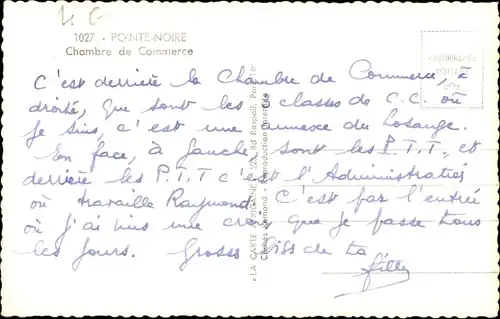 1027 - POINTE-NOIRE
Chambre de Commerce
PHOTOGRAPHIE
C'est derrière la Chambre de Commerce, à
droite, que sont les classes de C.C. où
je suis, c'est une annexe du Losange.
En face, à gauche, sont les P.T.T. et
derrière les P.T.T c'est l'Administratif
où travaille Raymond. C'est par l'entrée
où j'ai mis une croix que je passe tous
les jours. Grosses Biss de ta
fille
«LA CARTE AFRICAINE» Bd Raspail, Paris
Clichés - Reproduction